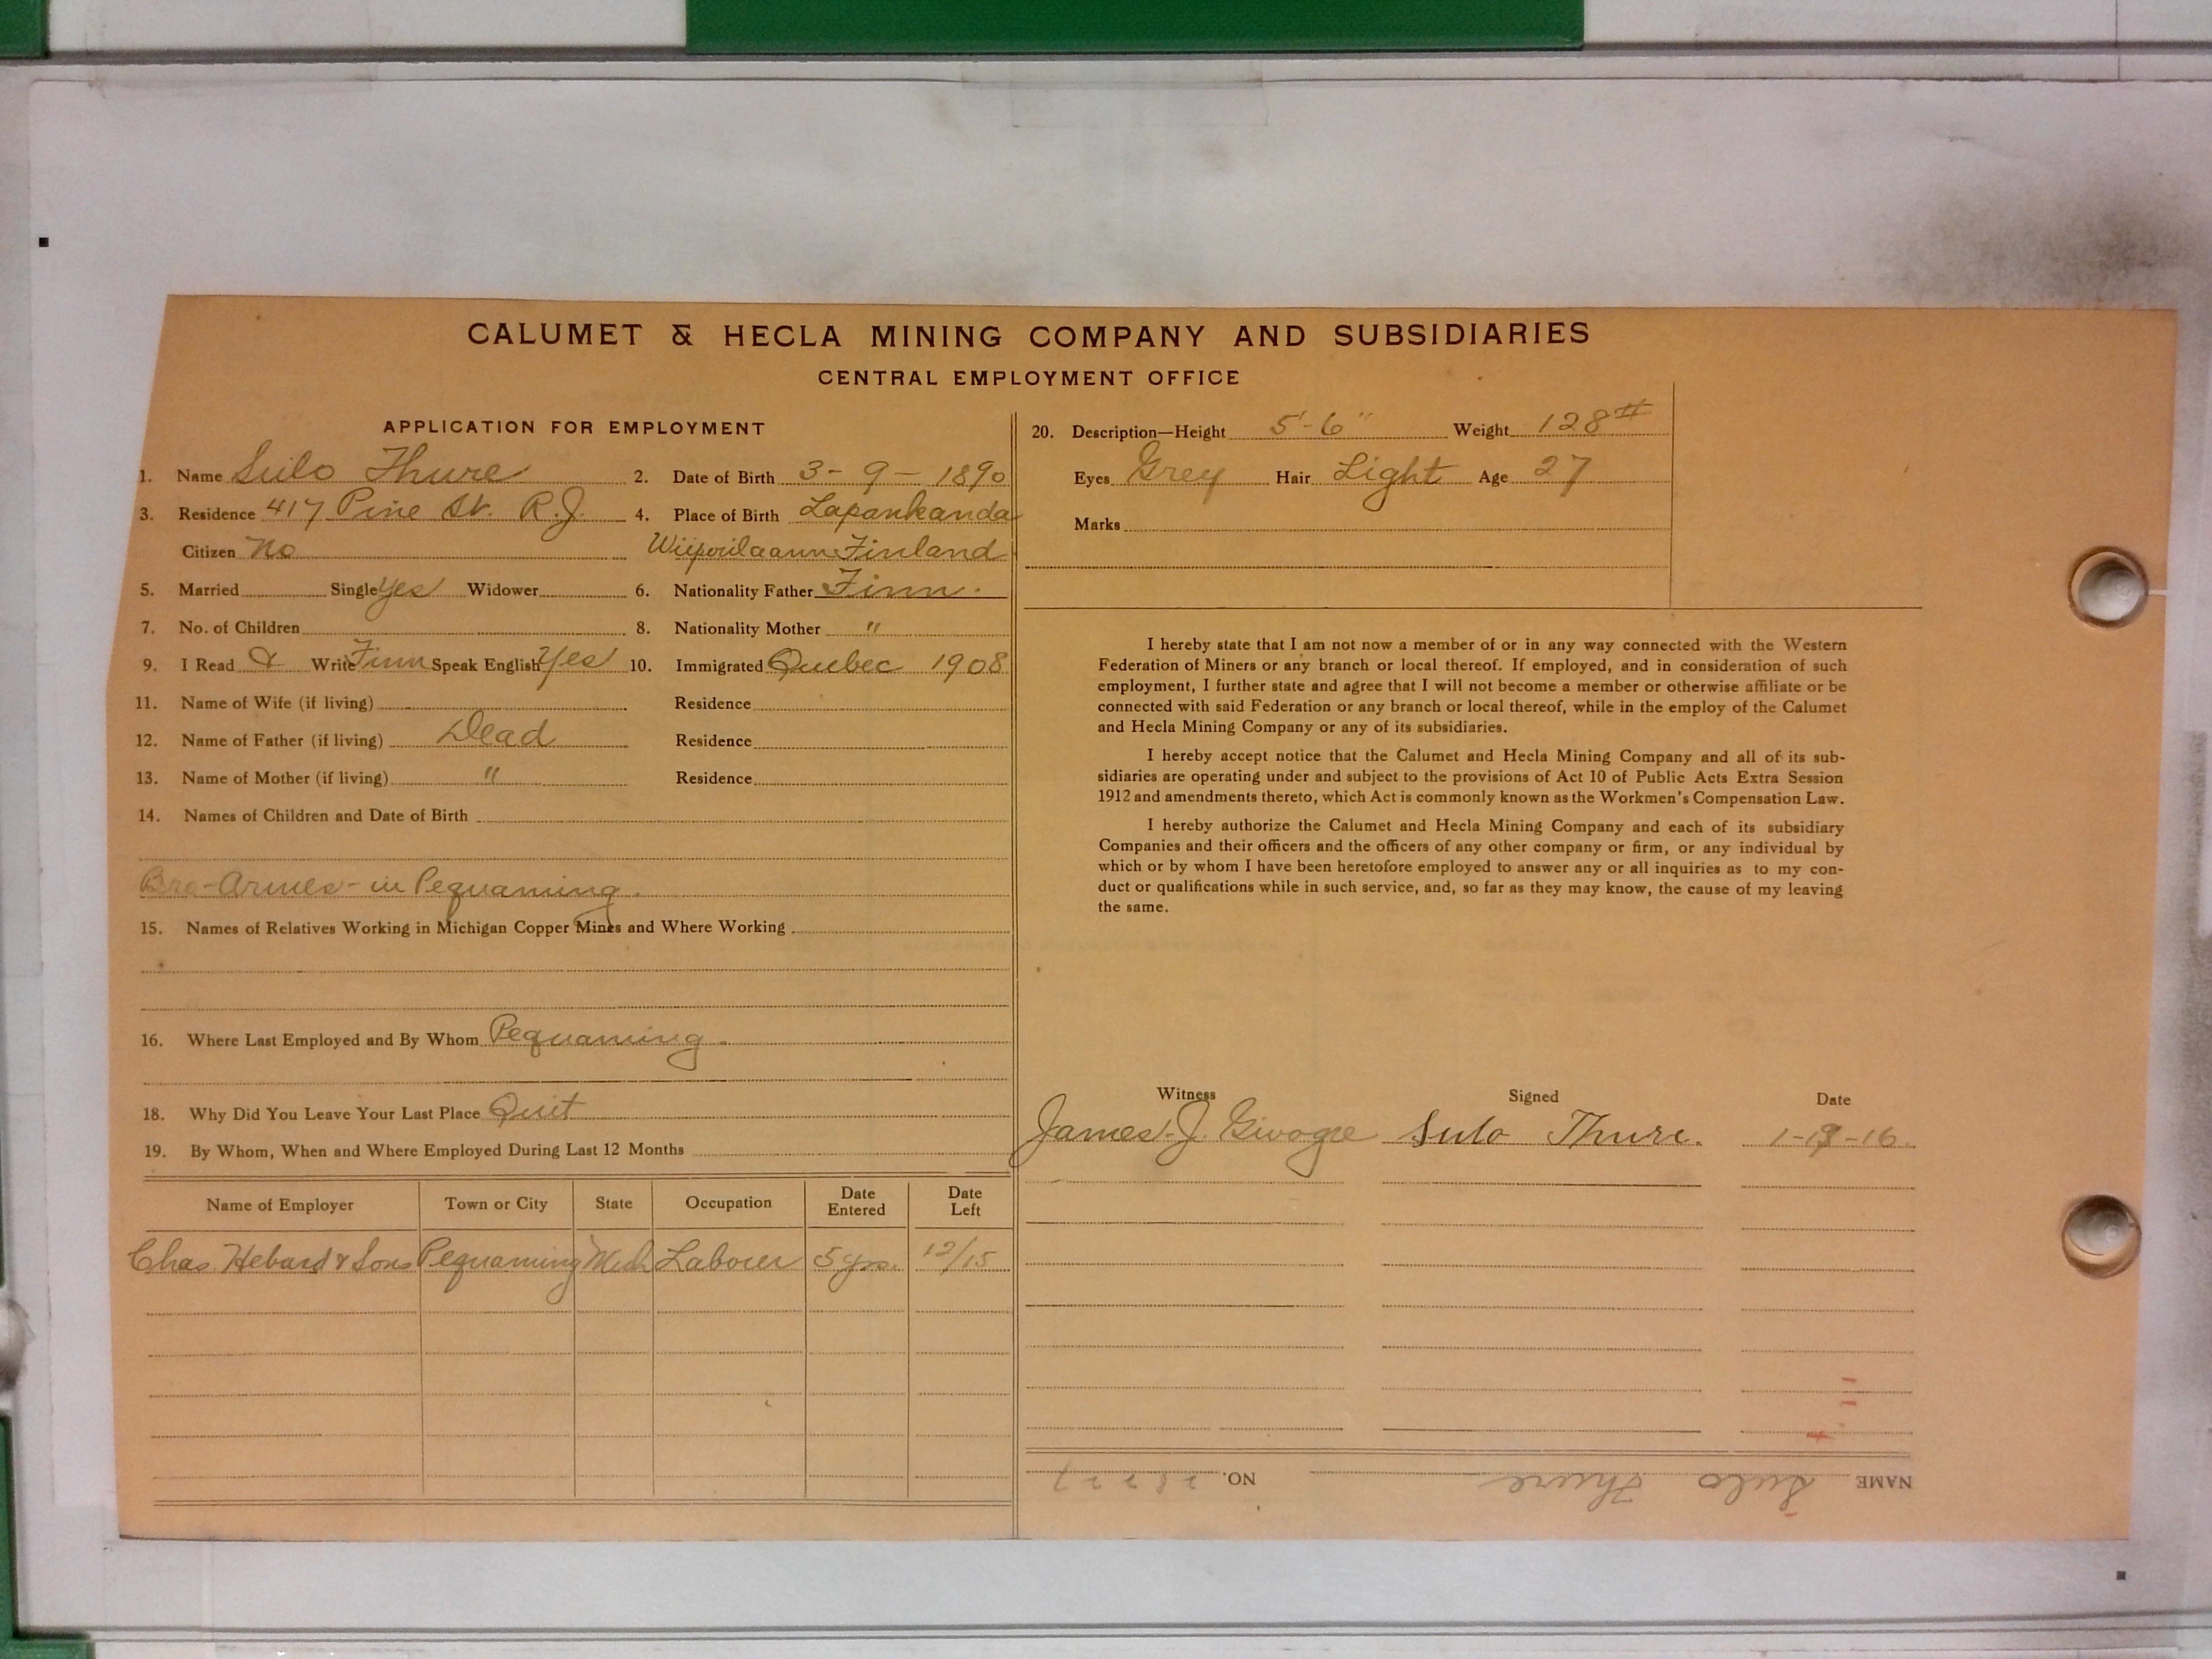 CALUMET & HECLA MINING COMPANY AND SUBSIDIARIES
CENTRAL EMPLOYMENT OFFICE
APPLICATION FOR EMPLOYMENT
1. Name Sulo Thure 2. Date of Birth 3-9-1890
3. Residence 417 Pine St. R.J. 4. Place of Birth Lapankanda
Citizen No Finland
5. Married Single Yes Widower 6. Nationality Father Finn.
7. No. of Children 8. Nationality Mother "
9. I Read & Write Finn Speak English Yes 10. Immigrated Quebec 1908
11. Name of Wife (if living) Residence
12. Name of Father (if living) Dead Residence
13. Name of Mother (if living) " Residence
14. Names of Children and Date of Birth
Bro-Armes-in Pequaming.
15. Names of Relatives Working in Michigan Copper Mines and Where Working
16. Where Last Employed and By Whom Pequaming.
18. Why Did You Leave Your Last Place Quit
19. By Whom, When and Where Employed During Last 12 Months
Name of Employer Town or City State Occupation Date Entered Date Left
Chas. Hebard & Sons Pequaming Mich Laborer 5 yrs. 12/15
20. Description—Height 5'-6" Weight 128#
Eyes Grey Hair Light Age 27
Marks
I hereby state that I am not now a member of or in any way connected with the Western
Federation of Miners or any branch or local thereof. If employed, and in consideration of such
employment, I further state and agree that I will not become a member or otherwise affiliate or be
connected with said Federation or any branch or local thereof, while in the employ of the Calumet
and Hecla Mining Company or any of its subsidiaries.
I hereby accept notice that the Calumet and Hecla Mining Company and all of its sub-
sidiaries are operating under and subject to the provisions of Act 10 of Public Acts Extra Session
1912 and amendments thereto, which Act is commonly known as the Workmen's Compensation Law.
I hereby authorize the Calumet and Hecla Mining Company and each of its subsidiary
Companies and their officers and the officers of any other company or firm, or any individual by
which or by whom I have been heretofore employed to answer any or all inquiries as to my con-
duct or qualifications while in such service, and, so far as they may know, the cause of my leaving
the same.
Witness Signed Date
James J. Sulo Thure.
NAME Sulo Thure NO.